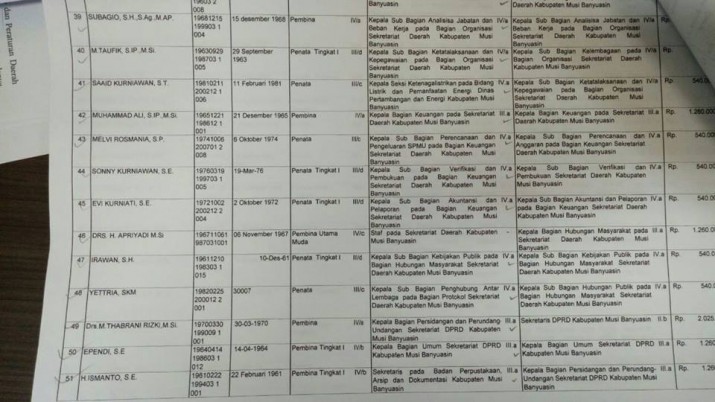 dan Peraturan Daerah
008
Banyuasin
Daerah Kabupaten Musi Banyuasin
39 SUBAGIO, S.H.,S.Ag.,M.AP. 19681215 199903 1 004 15 desember 1968 Pembina IV/a Kepala Sub Bagian Analisisa Jabatan dan Beban Kerja pada Bagian Organisasi Sekretariat Daerah Kabupaten Musi Banyuasin IV/a Kepala Sub Bagian Analisisa Jabatan dan Beban Kerja pada Bagian Organisasi Sekretariat Daerah Kabupaten Musi Banyuasin IV/a Rp.
40 M.TAUFIK, S.IP.,M.Si. 19630929 198703 1 005 29 September 1963 Penata Tingkat I III/d Kepala Sub Bagian Ketatalaksanaan dan Kepegawaian pada Bagian Organisasi Sekretariat Daerah Kabupaten Musi Banyuasin IV/a Kepala Sub Bagian Kelembagaan pada Bagian Organisasi Sekretariat Daerah Kabupaten Musi Banyuasin IV/a Rp.
41 SAAID KURNIAWAN, S.T. 19810211 200212 1 006 11 Februari 1981 Penata III/c Kepala Seksi Ketenagalistrikan pada Bidang Listrik dan Pemanfaatan Energi Dinas Pertambangan dan Energi Kabupaten Musi Banyuasin IV/a Kepala Sub Bagian Ketatalaksanaan dan Kepegawaian pada Bagian Organisasi Sekretariat Daerah Kabupaten Musi Banyuasin IV/a Rp. 540.
42 MUHAMMAD ALI, S.IP.,M.Si. 19651221 198612 1 001 21 Desember 1965 Pembina IV/a Kepala Bagian Keuangan pada Sekretariat Daerah Kabupaten Musi Banyuasin III.a Kepala Bagian Keuangan pada Sekretariat Daerah Kabupaten Musi Banyuasin III.a Rp. 1.260.000
43 MELVI ROSMANIA, S.P. 19741006 200701 2 008 6 Oktober 1974 Penata III/c Kepala Sub Bagian Perencanaan dan Pengeluaran SPMU pada Bagian Keuangan Sekretariat Daerah Kabupaten Musi Banyuasin IV.a Kepala Sub Bagian Perencanaan dan Anggaran pada Bagian Keuangan Sekretariat Daerah Kabupaten Musi Banyuasin IV.a Rp. 540.00
44 SONNY KURNIAWAN, SE 19760319 199703 1 005 19-Mar-76 Penata Tingkat I III/d Kepala Sub Bagian Verifikasi dan Pembukuan pada Bagian Keuangan Sekretariat Daerah Kabupaten Musi Banyuasin IV.a Kepala Sub Bagian Verifikasi dan Pembukuan Sekretariat Daerah Kabupaten Musi Banyuasin IV.a Rp. 540.00
45 EVI KURNIATI, S.E. 19721002 200212 2 004 2 Oktober 1972 Penata Tingkat I III/d Kepala Sub Bagian Akuntansi dan Pelaporan pada Bagian Keuangan Sekretariat Daerah Kabupaten Musi Banyuasin IV.a Kepala Sub Bagian Akuntansi dan Pelaporan pada Bagian Keuangan Sekretariat Daerah Kabupaten Musi Banyuasin IV.a Rp. 540.00
46 DRS. H. APRIYADI M.Si 196711061 987031001 06 November 1967 Pembina Utama Muda IV/c Staf pada Sekretariat Daerah Kabupaten Musi Banyuasin - Kepala Bagian Hubungan Masyarakat pada Sekretariat Daerah Kabupaten Musi Banyuasin III.a Rp. 1.260.0
47 IRAWAN, S.H. 19611210 198303 1 015 10-Des-61 Penata Tingkat I III/d Kepala Sub Bagian Kebijakan Publik pada Bagian Hubungan Masyarakat Sekretariat Daerah Kabupaten Musi Banyuasin IV.a Kepala Sub Bagian Kebijakan Publik pada Bagian Hubungan Masyarakat Sekretariat Daerah Kabupaten Musi Banyuasin IV.a Rp. 540.0
48 YETTRIA, SKM 19820225 200012 2 001 30007 Penata III/c Kepala Sub Bagian Penghubung Antar Lembaga pada Bagian Protokol Sekretariat Daerah Kabupaten Musi Banyuasin IV.a Kepala Sub Bagian Hubungan Publik pada Bagian Hubungan Masyarakat Sekretariat Daerah Kabupaten Musi Banyuasin IV.a Rp. 540.0
49 Drs.M.THABRANI RIZKI,M.Si. 19700330 199009 1 001 30-03-1970 Pembina IV/a Kepala Bagian Persidangan dan Perundang-Undangan Sekretariat DPRD Kabupaten Musi Banyuasin III.a Sekretaris DPRD Kabupaten Musi Banyuasin II.b Rp. 2.025
50 EPENDI, S.E 19640414 198603 1 012 14-04-1964 Pembina Tingkat I IV/b Kepala Bagian Umum Sekretariat DPRD Kabupaten Musi Banyuasin III.a Kepala Bagian Umum Sekretariat DPRD Kabupaten Musi Banyuasin III.a Rp. 1.260
51 H.ISMANTO, S.E. 19610222 199403 1 001 22 Februari 1961 Pembina Tingkat I IV/b Sekretaris pada Badan Perpustakaan, Arsip dan Dokumentasi Kabupaten Musi Banyuasin III.a Kepala Bagian Persidangan dan Perundang-Undangan Sekretariat DPRD Kabupaten Musi Banyuasin III.a Rp. 1.26